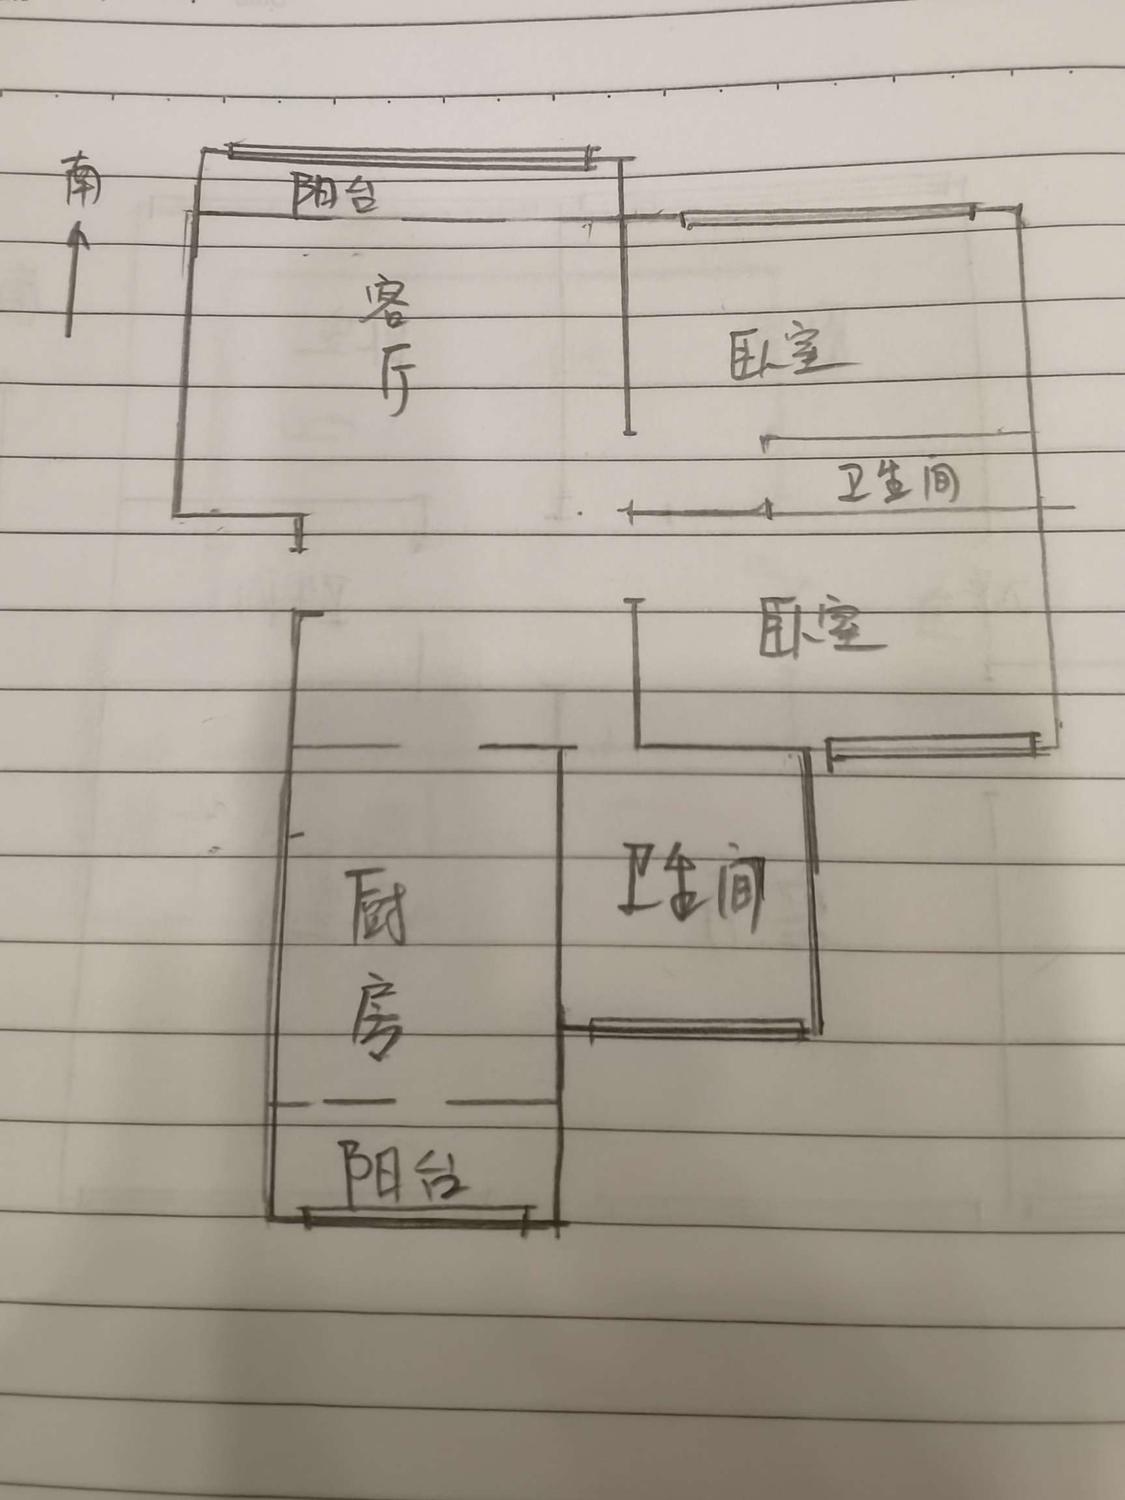 南
阳台
客厅
卧室
卫生间
卧室
卫生间
厨房
阳台